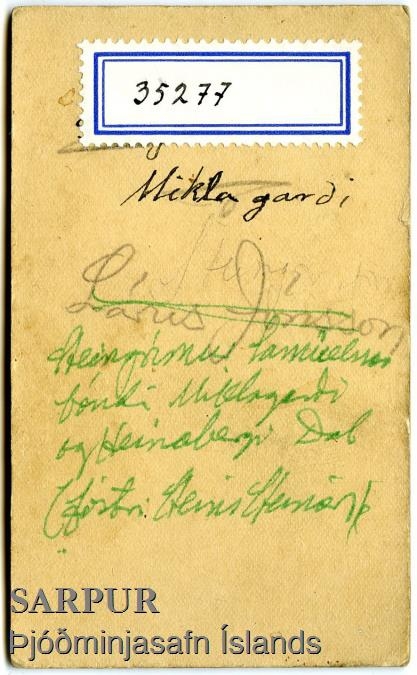 35277
Miklagarði
Lárus Jónsson
Steingrímur Samúelsson
bóndi Miklagarði
og Heinabergi Dal
(fóstri Steins Steinarr)
SARPUR
Þjóðminjasafn Íslands